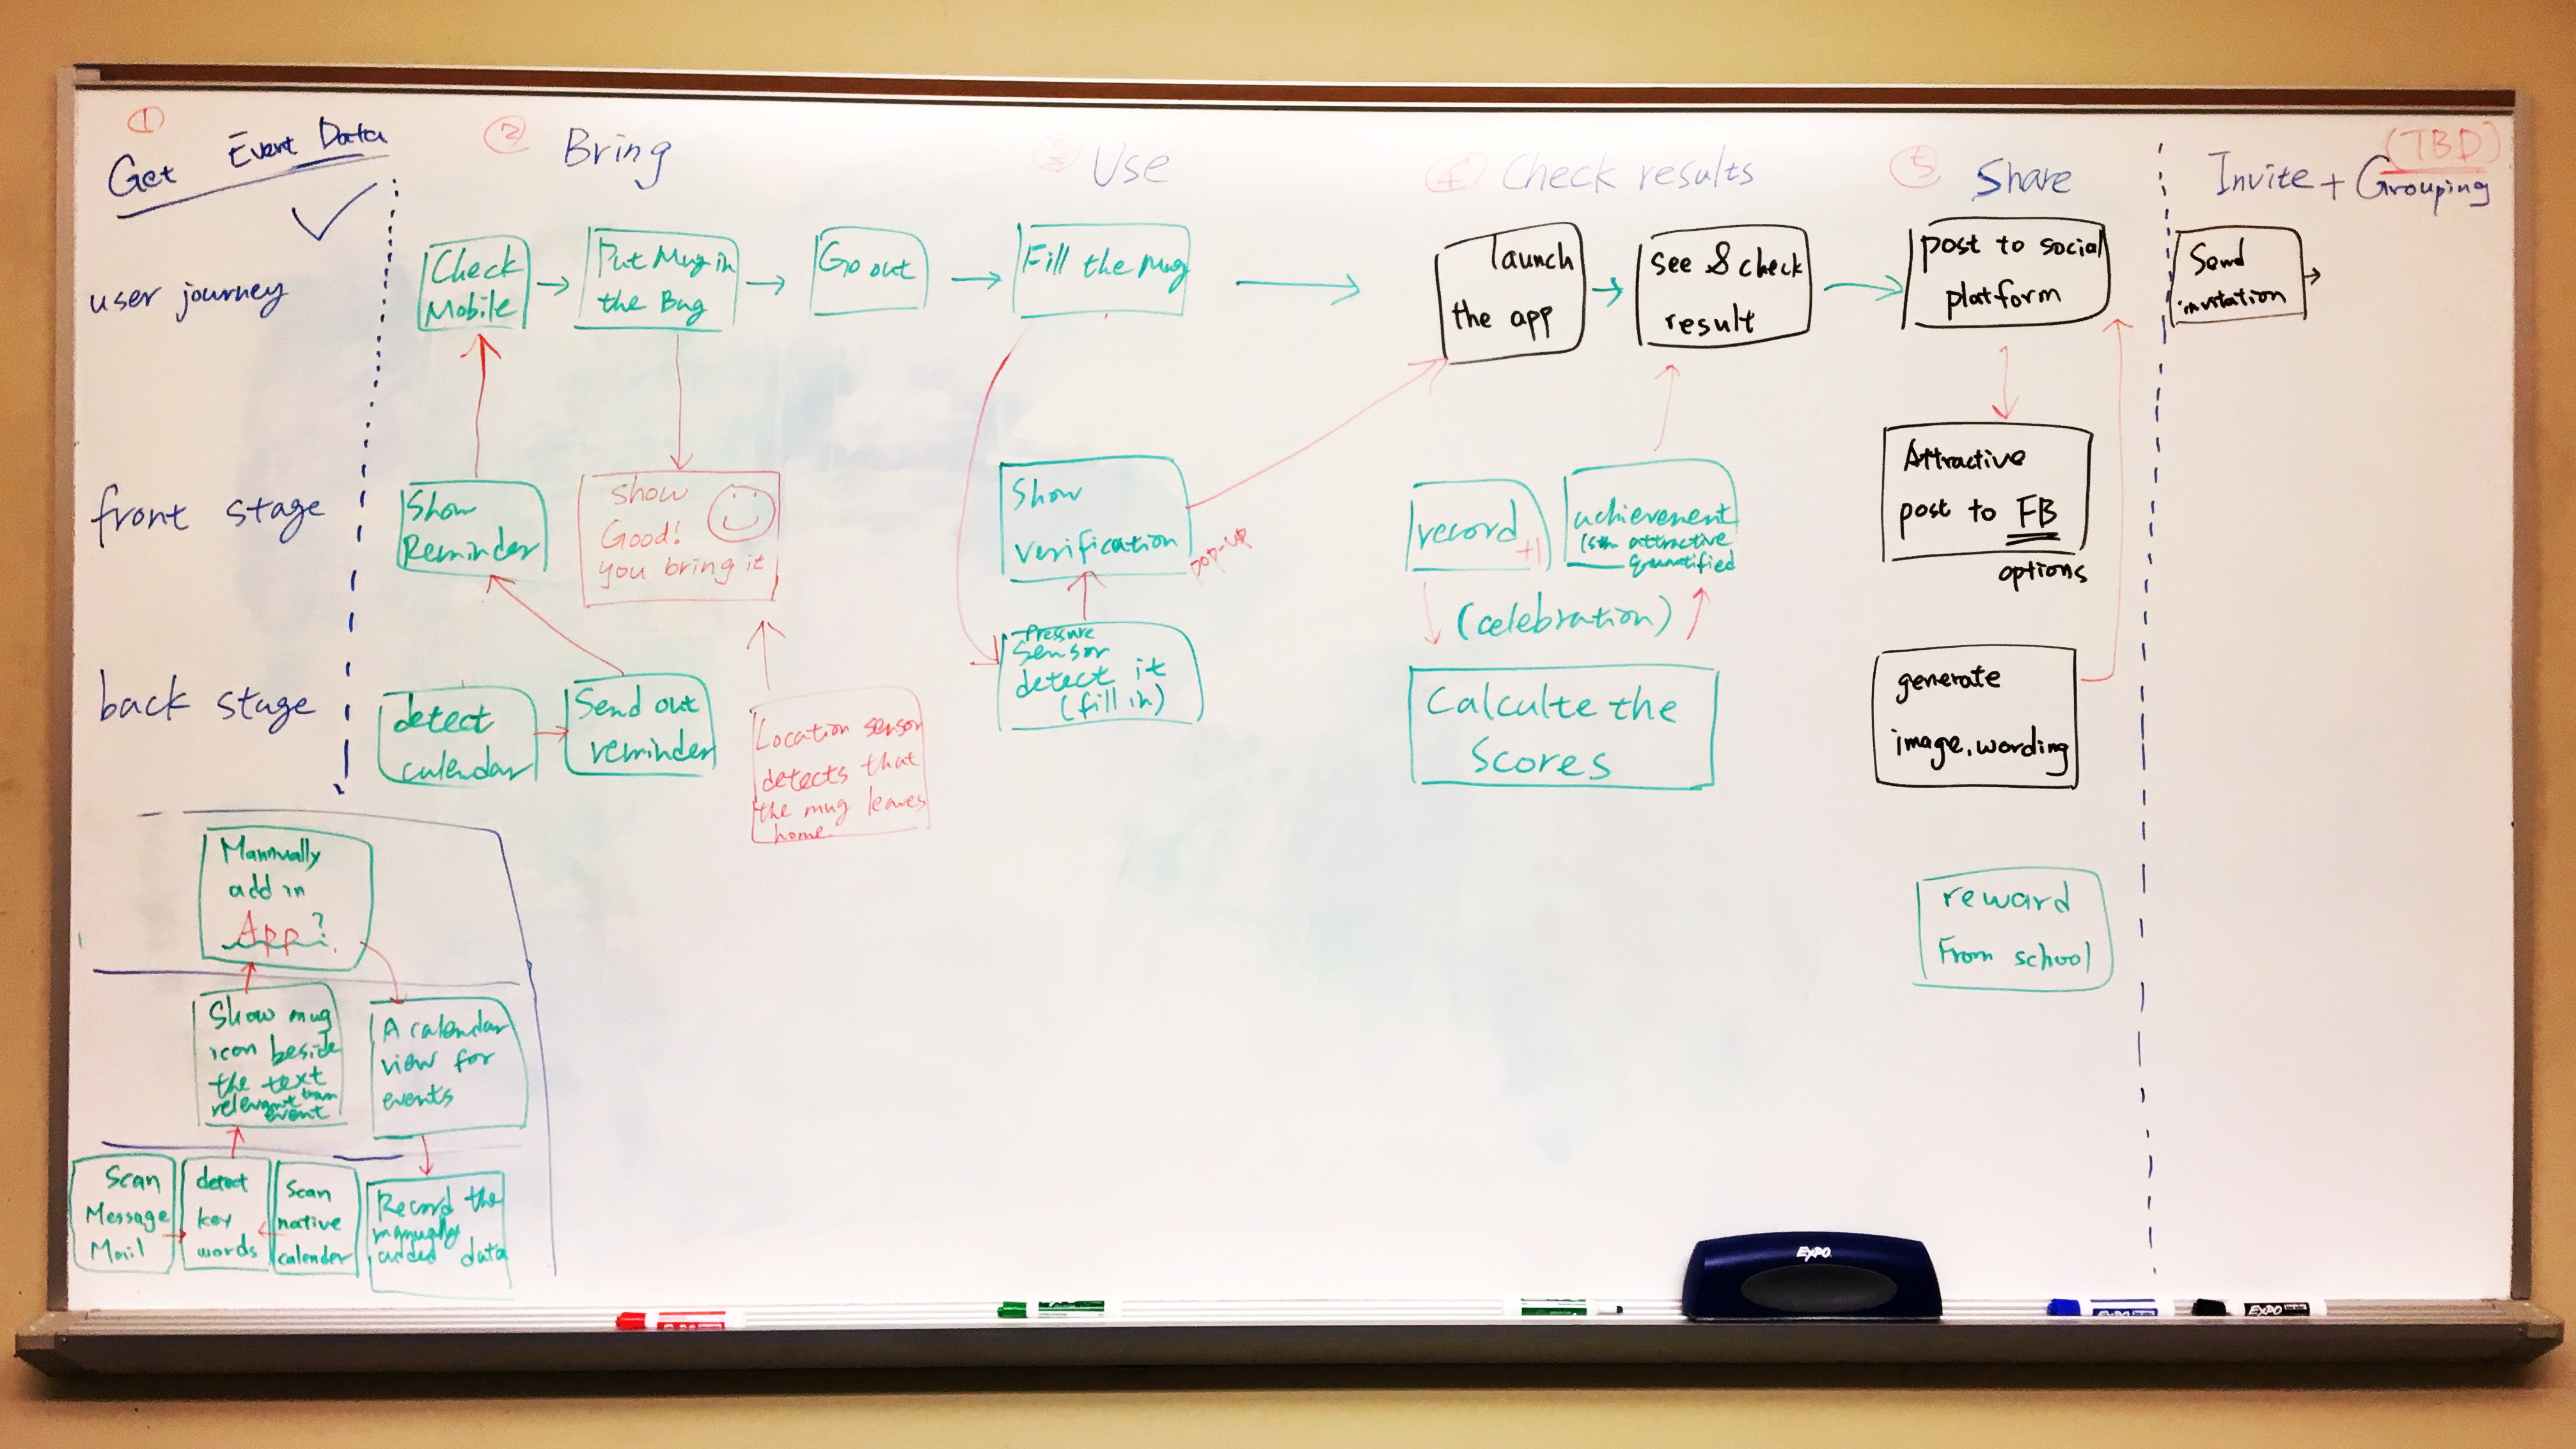 ①
Get Event Data
② Bring
③ Use
④ Check results
⑤ Share
(TBD)
Invite + Grouping
user journey
Check
Mobile
Put Mug in
the Bag
Go out
Fill the Mug
launch
the app
see & check
result
post to social
platform
Send
invitation
front stage
Show
Reminder
show
Good!
you bring it
Show
verification
pop-up
record
+1
achievement
attractive
quantified
(celebration)
Attractive
post to FB
options
back stage
detect
calendar
Send out
reminder
Location sensor
detects that
the mug leaves
home
Pressure
Sensor
detect it
(fill in)
Calculte the
Scores
generate
image, wording
reward
From school
Mannually
add in
App?
Show mug
icon beside
the text
relevant
event
A calendar
view for
events
Scan
Message
Mail
detect
key
words
Scan
native
calender
Record the
manually
added data
EXPO
EXPO
EXPO